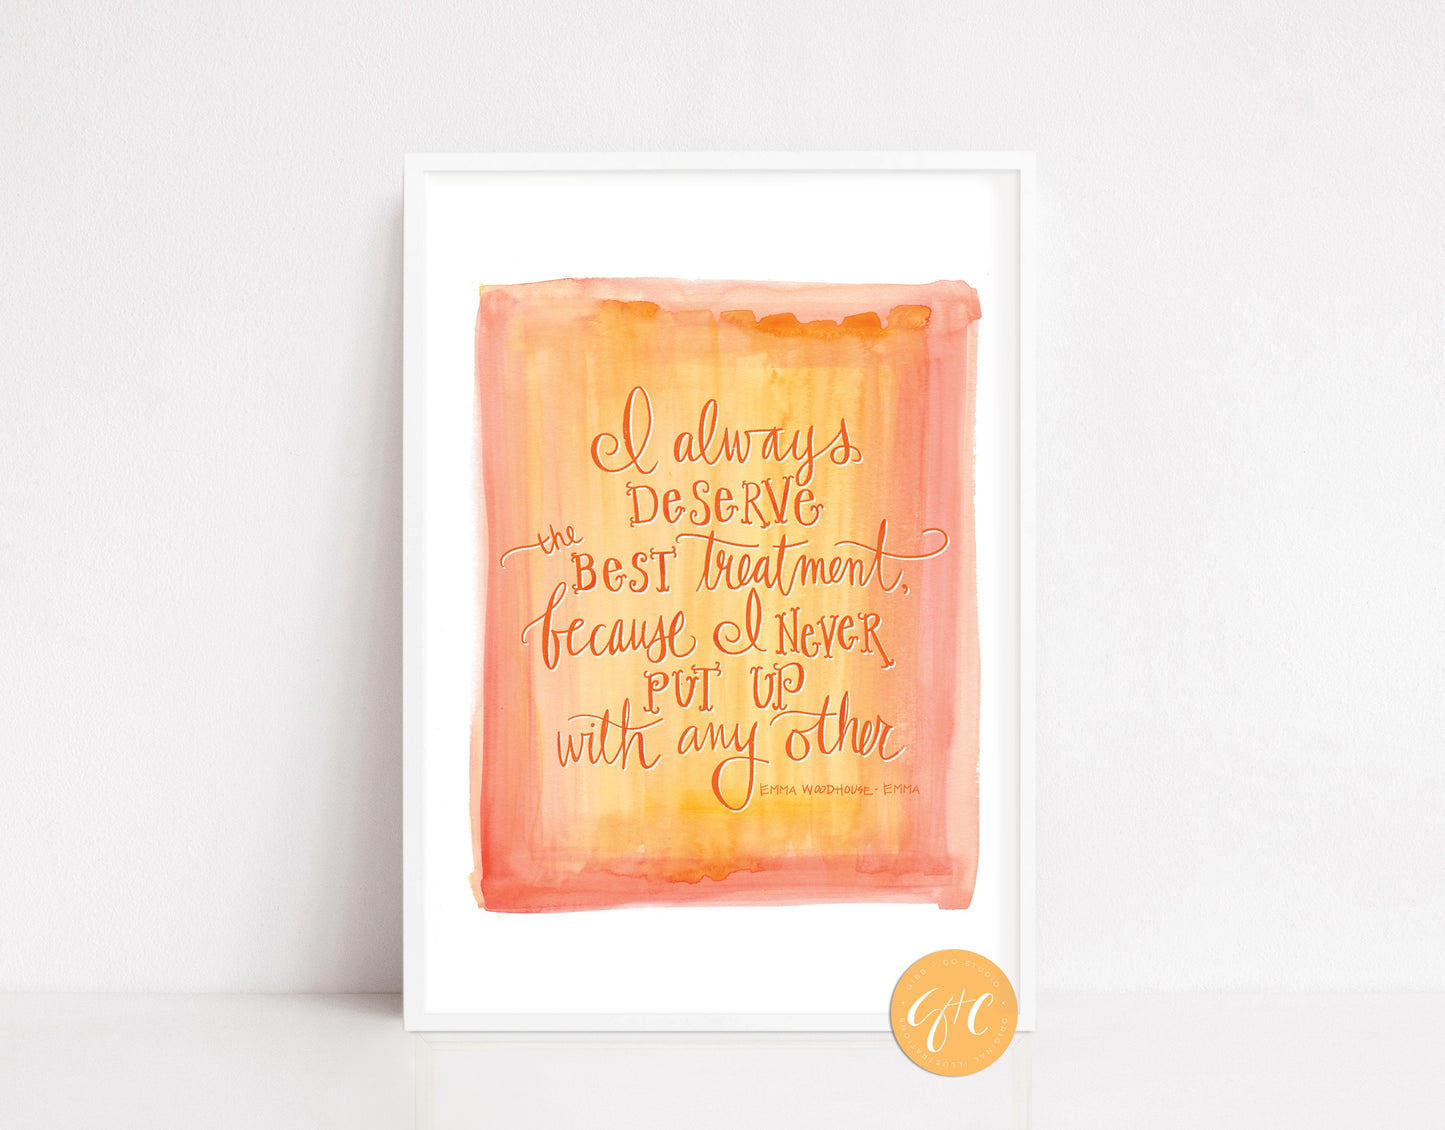 I always
DeSeRVe
the
BeST treatment,
because I NeVeR
PUT UP
with any other
EMMA WOODHOUSE - EMMA
GIBB + CO STUDIO
G+C
ORIGINAL ILLUSTRATIONS